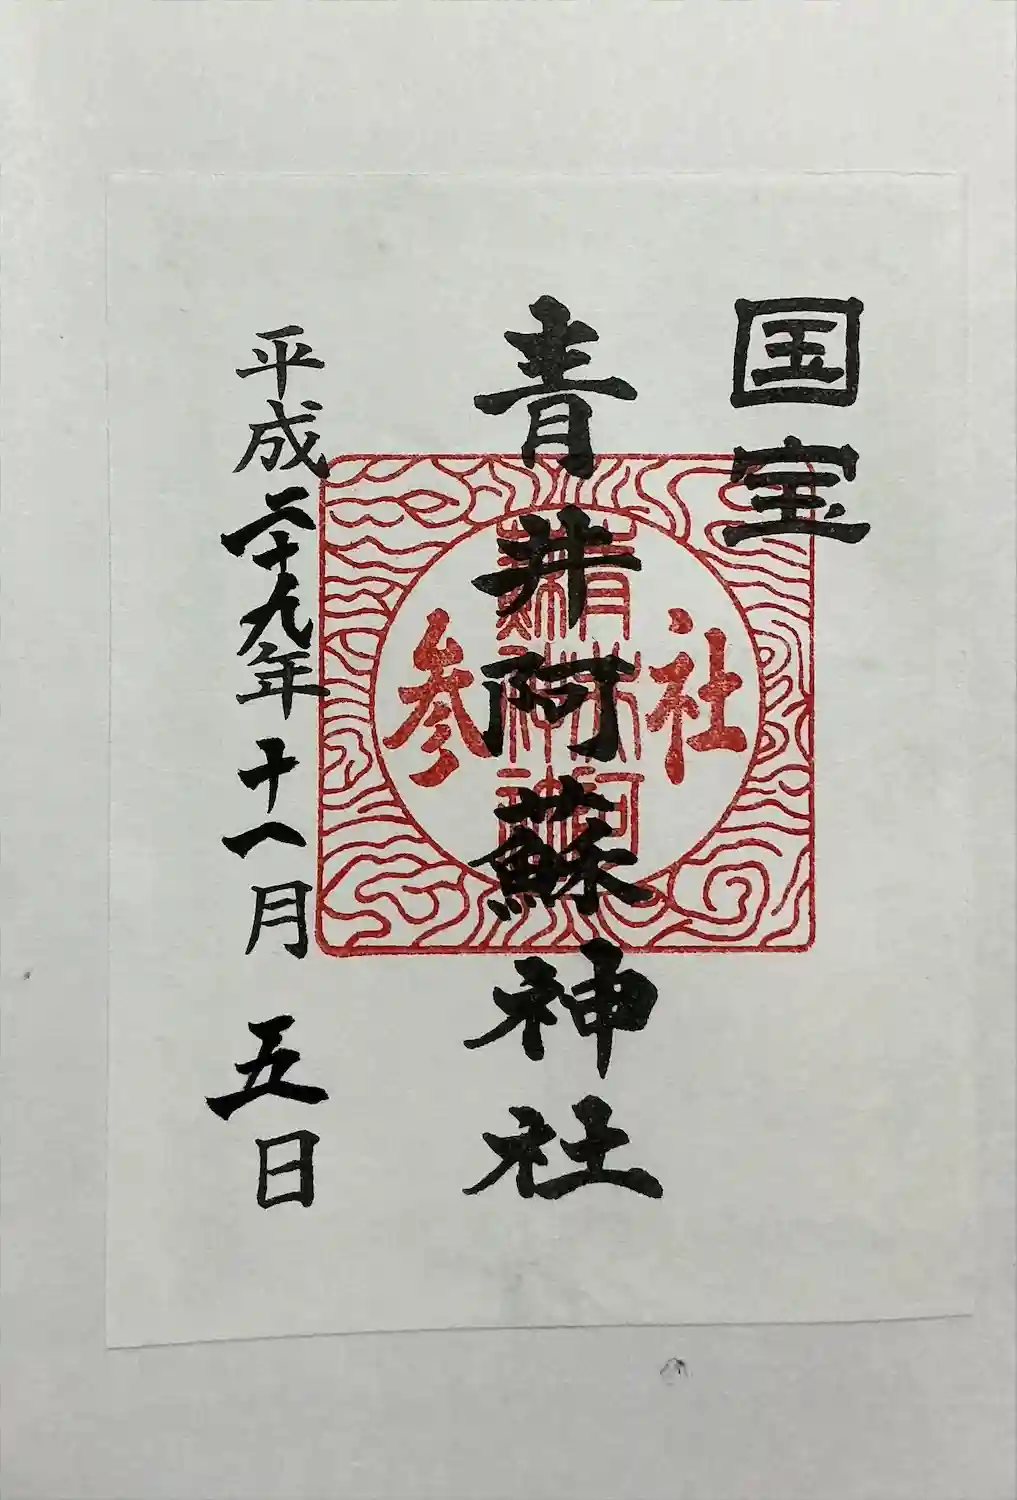 国宝
青井阿蘇神社
社参
青井阿蘇神社
平成二十九年十一月五日